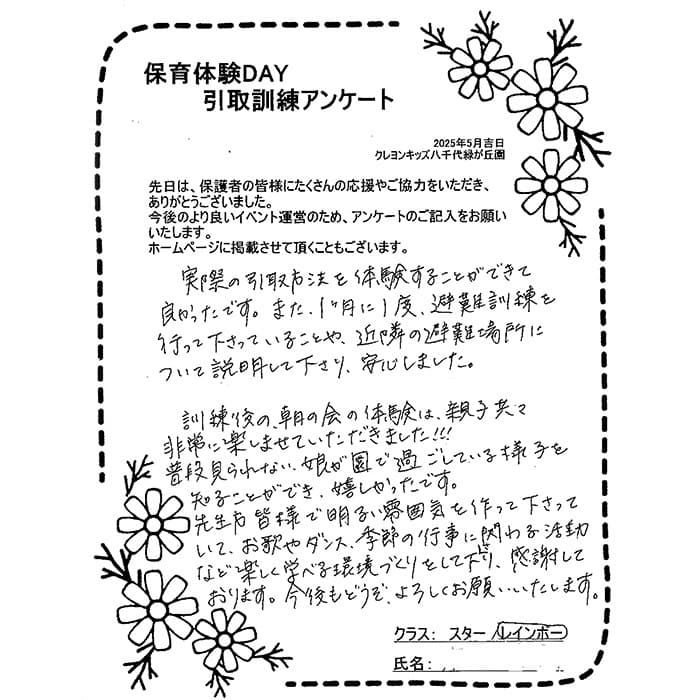 保育体験DAY
引取訓練アンケート
2025年5月吉日
クレヨンキッズ八千代緑が丘園
先日は、保護者の皆様にたくさんの応援やご協力をいただき、
ありがとうございました。
今後のより良いイベント運営のため、アンケートのご記入をお願い
いたします。
ホームページに掲載させて頂くこともございます。
実際の引取方法を体験することができて
良かったです。また、1ヶ月に1度、避難訓練を
行って下さっていることや、近隣の避難場所に
ついて説明して下さり、安心しました。
訓練後の、朝の会の体験は、親子共々
非常に楽しませていただきました!!!
普段見られない、娘が園で過ごしている様子を
知ることができ、嬉しかったです。
先生方皆様で明るい雰囲気を作って下さって
いて、お歌やダンス、季節の行事に関わる活動
など楽しく学べる環境づくりをして下さり、感謝して
おります。今後もどうぞ、よろしくお願いいたします。
クラス: スター / レインボー
氏名: